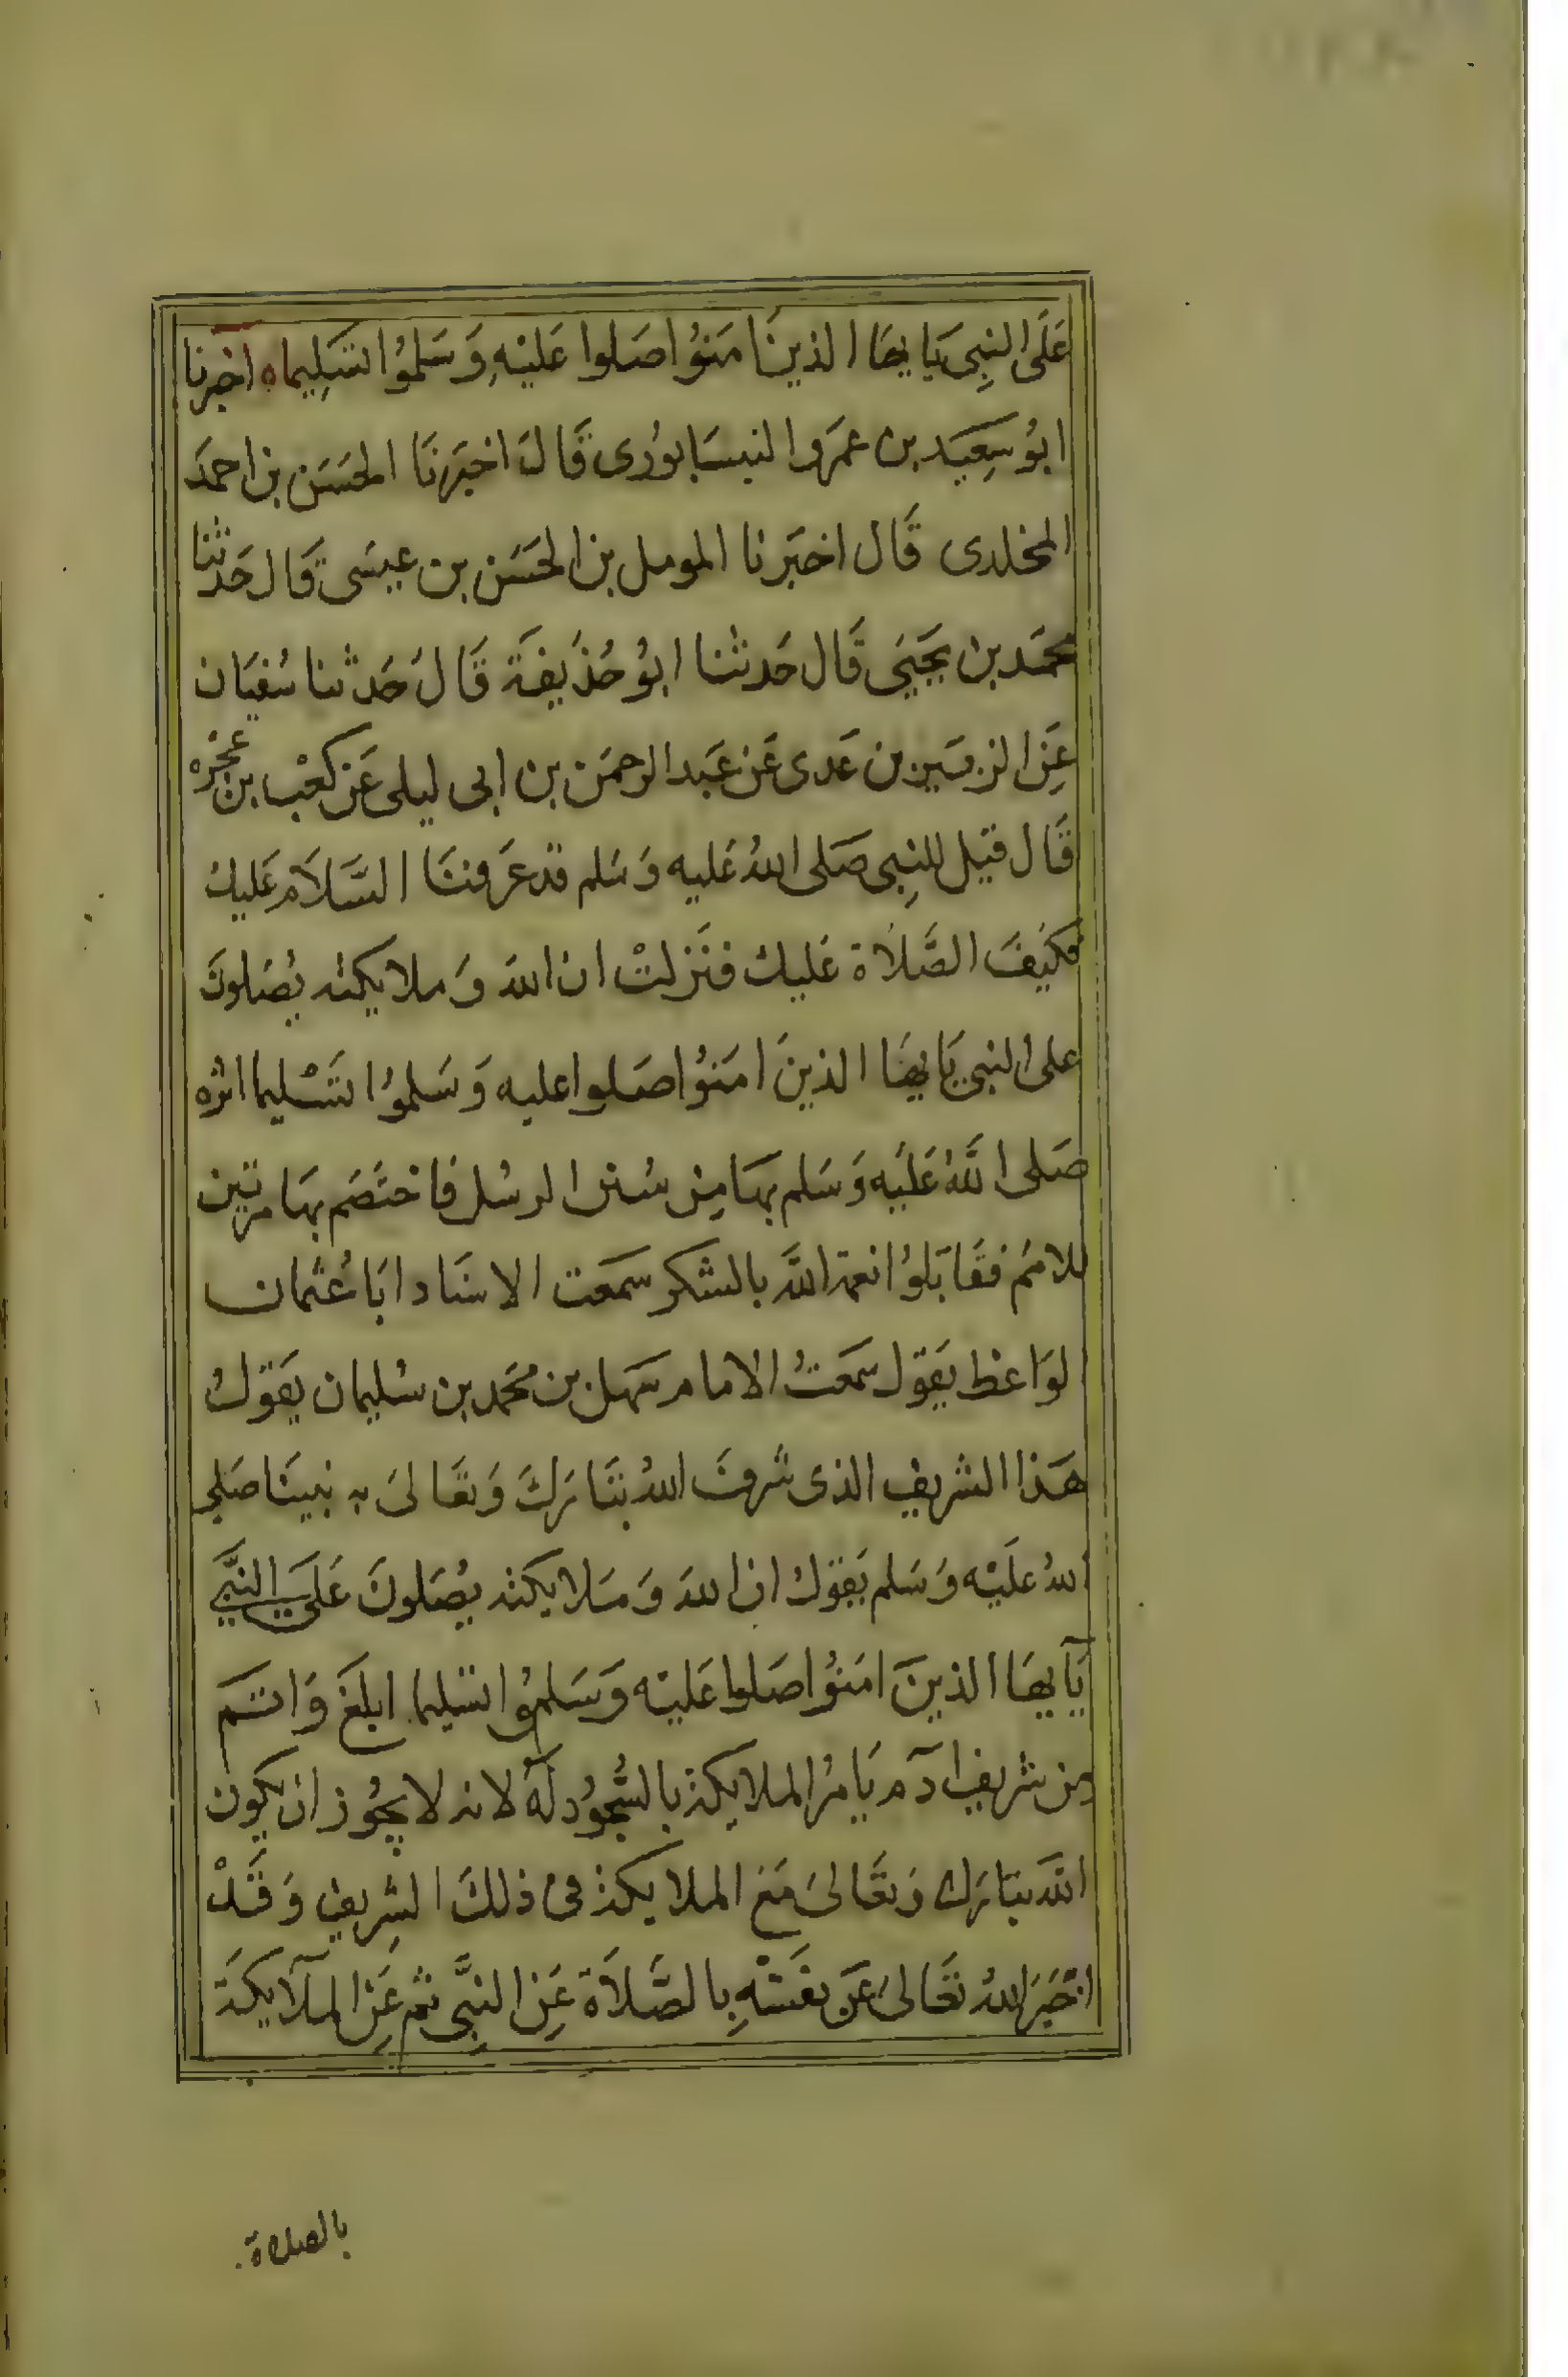 عَلَى النبِى يَا يهَا الذينَ امَنوُا صَلوا عَليْهِ وَسَلموُا تسَلِيماه اخبرنا
ابوُ سِعَيد بن عمَرو النيسَابوُرى قَالَ اخبَرنَا الحَسَن بن احمدَ
المخلدى قَال اخبَرنا المومل بن الحَسَن بن عيسَى قَال حَدثنا
محمَد بن يَحيَى قَال حَدثنا ابوُ حُذَيفَة قَالَ حَدثنا سُفيَان
عَنِ الزبَير بن عَدى عَن عَبد الرحمَن بن ابى ليلى عَن كعْب بن عجْره
قَال قيل للنبِى صَلى اللهُ عَليه وَسَلم قد عَرفنَا السَّلاَم عَليك
فكيَفَ الصَّلاَة عَليك فنَزلتْ ان اللهَ وَملايكته يصُلونَ
على النبى يَا يهَا الذينَ امَنوُا صَلوا عليه وَسَلموُا تسْليما اثره
صَلى اللَّهُ عَليَه وَسَلم بهَا مِن سُنن الرسُل فَاختصَم بهَا مرتين
للامَم فقَابَلوُا نعمة اللَّه بالشكر سمَعت الاسَاد ابَا عُثمان
لوَاعظ يقَول سمَعتُ الامام سَهل بن محَمد بن سُليمان يقَولُ
هَذا الشريف الذى شرفَ اللهُ تبَاركَ وَتعَالىَ به نبينَا صَلى
اللهُ عَليْه وَسَلم بقولهُ ان اللهَ وَمَلايكته يصُلونَ عَلىَ النبَّي
يَآ يهَا الذينَ امَنوُا صَلوا عَليْه وَسَلموُا تسْليما ابلغَ وَاتم
من شريف ادَم يَامرُ الملايكة بالسُّجوُد لهَ لانه لا يجوُز ان يكون
اللهَ تبَارك وَتعَالىَ مَعَ الملايكة فى ذلكَ الشرِيف وَقَدْ
اخبَرَ اللهُ تعَالىَ عَن نفَسْهِ بالصَّلاَة عَنِ النبِيَّ ثم عَنِ الملآيكَة
بالصلاة.